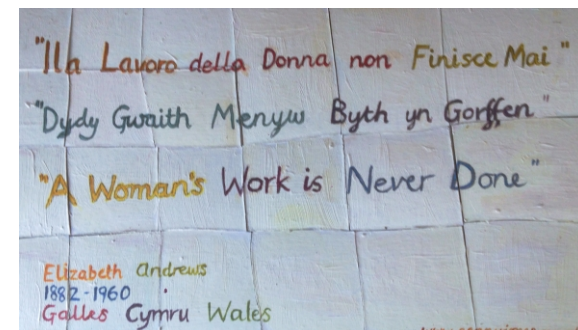 "Ila Lavoro della Donna non Finisce Mai"
"Dydy Gwaith Menyw Byth yn Gorffen"
"A Woman's Work is Never Done"
Elizabeth Andrews
1882-1960
Galles Cymru Wales